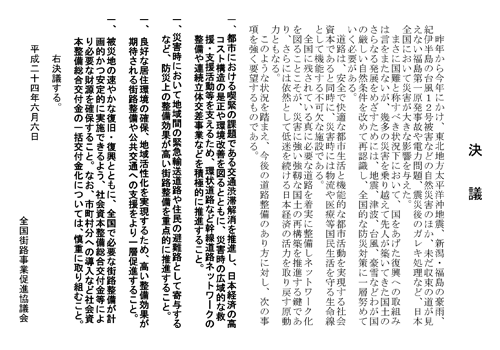 決議
昨年から今年にかけ、東北地方太平洋沖地震、新潟・福島の豪雨、
紀伊半島の台風12号被害などの自然災害のほか、未だ収束の道が見
えない福島第一原発事故や電力問題、震災後のガレキ処理など、日本
全国において災害が大きな影響を与えた。
まさに国難と称すべき状況下において、国をあげた復興への取組み
は言をまたないが、幾多の災害を乗り越えて先人が築いてきた国土の
さらなる発展をめざすためには、地震、津波、台風、豪雪などわが国
の厳しい自然条件を改めて再認識し、全国的な防災対策に一層努めて
いく必要がある。
道路は、安全で快適な都市生活と機能的な都市活動を実現する社会
資本であると同時に、災害時には物流や医療等国民生活を守る生命線
として機能する不可欠な施設である。
全国に残されている真に必要な道路を着実に整備しネットワーク化
を図ることこそが、災害に強い強靱な国土の再構築を推進する鍵であ
り、さらには依然として低迷を続ける日本経済の活力を取り戻す原動
力ともなる。
このような状況を踏まえ、今後の道路整備のあり方に対し、次の事
項を強く要望するものである。
一、都市における喫緊の課題である交通渋滞解消を推進し、日本経済の高
コスト構造の是正や環境改善を図るとともに、災害時の広域的な救
援・支援活動等を支えるため、環状道路など幹線道路ネットワークの
整備や連続立体交差事業などを積極的に推進すること。
一、災害時において地域間の緊急輸送道路や住民の避難路として寄与する
など、防災上の整備効果が高い街路整備を重点的に推進すること。
一、良好な居住環境の確保、地域活性化を実現するため、高い整備効果が
期待される街路整備や公共交通への支援をより一層促進すること。
一、被災地の速やかな復旧・復興とともに、全国で必要な街路整備が計
画的かつ安定的に実施できるよう、社会資本整備総合交付金等によ
り必要な財源を確保すること。なお、市町村分への導入など社会資
本整備総合交付金の一括交付金化については、慎重に取り組むこと。
右決議する。
平成二十四年六月六日
全国街路事業促進協議会